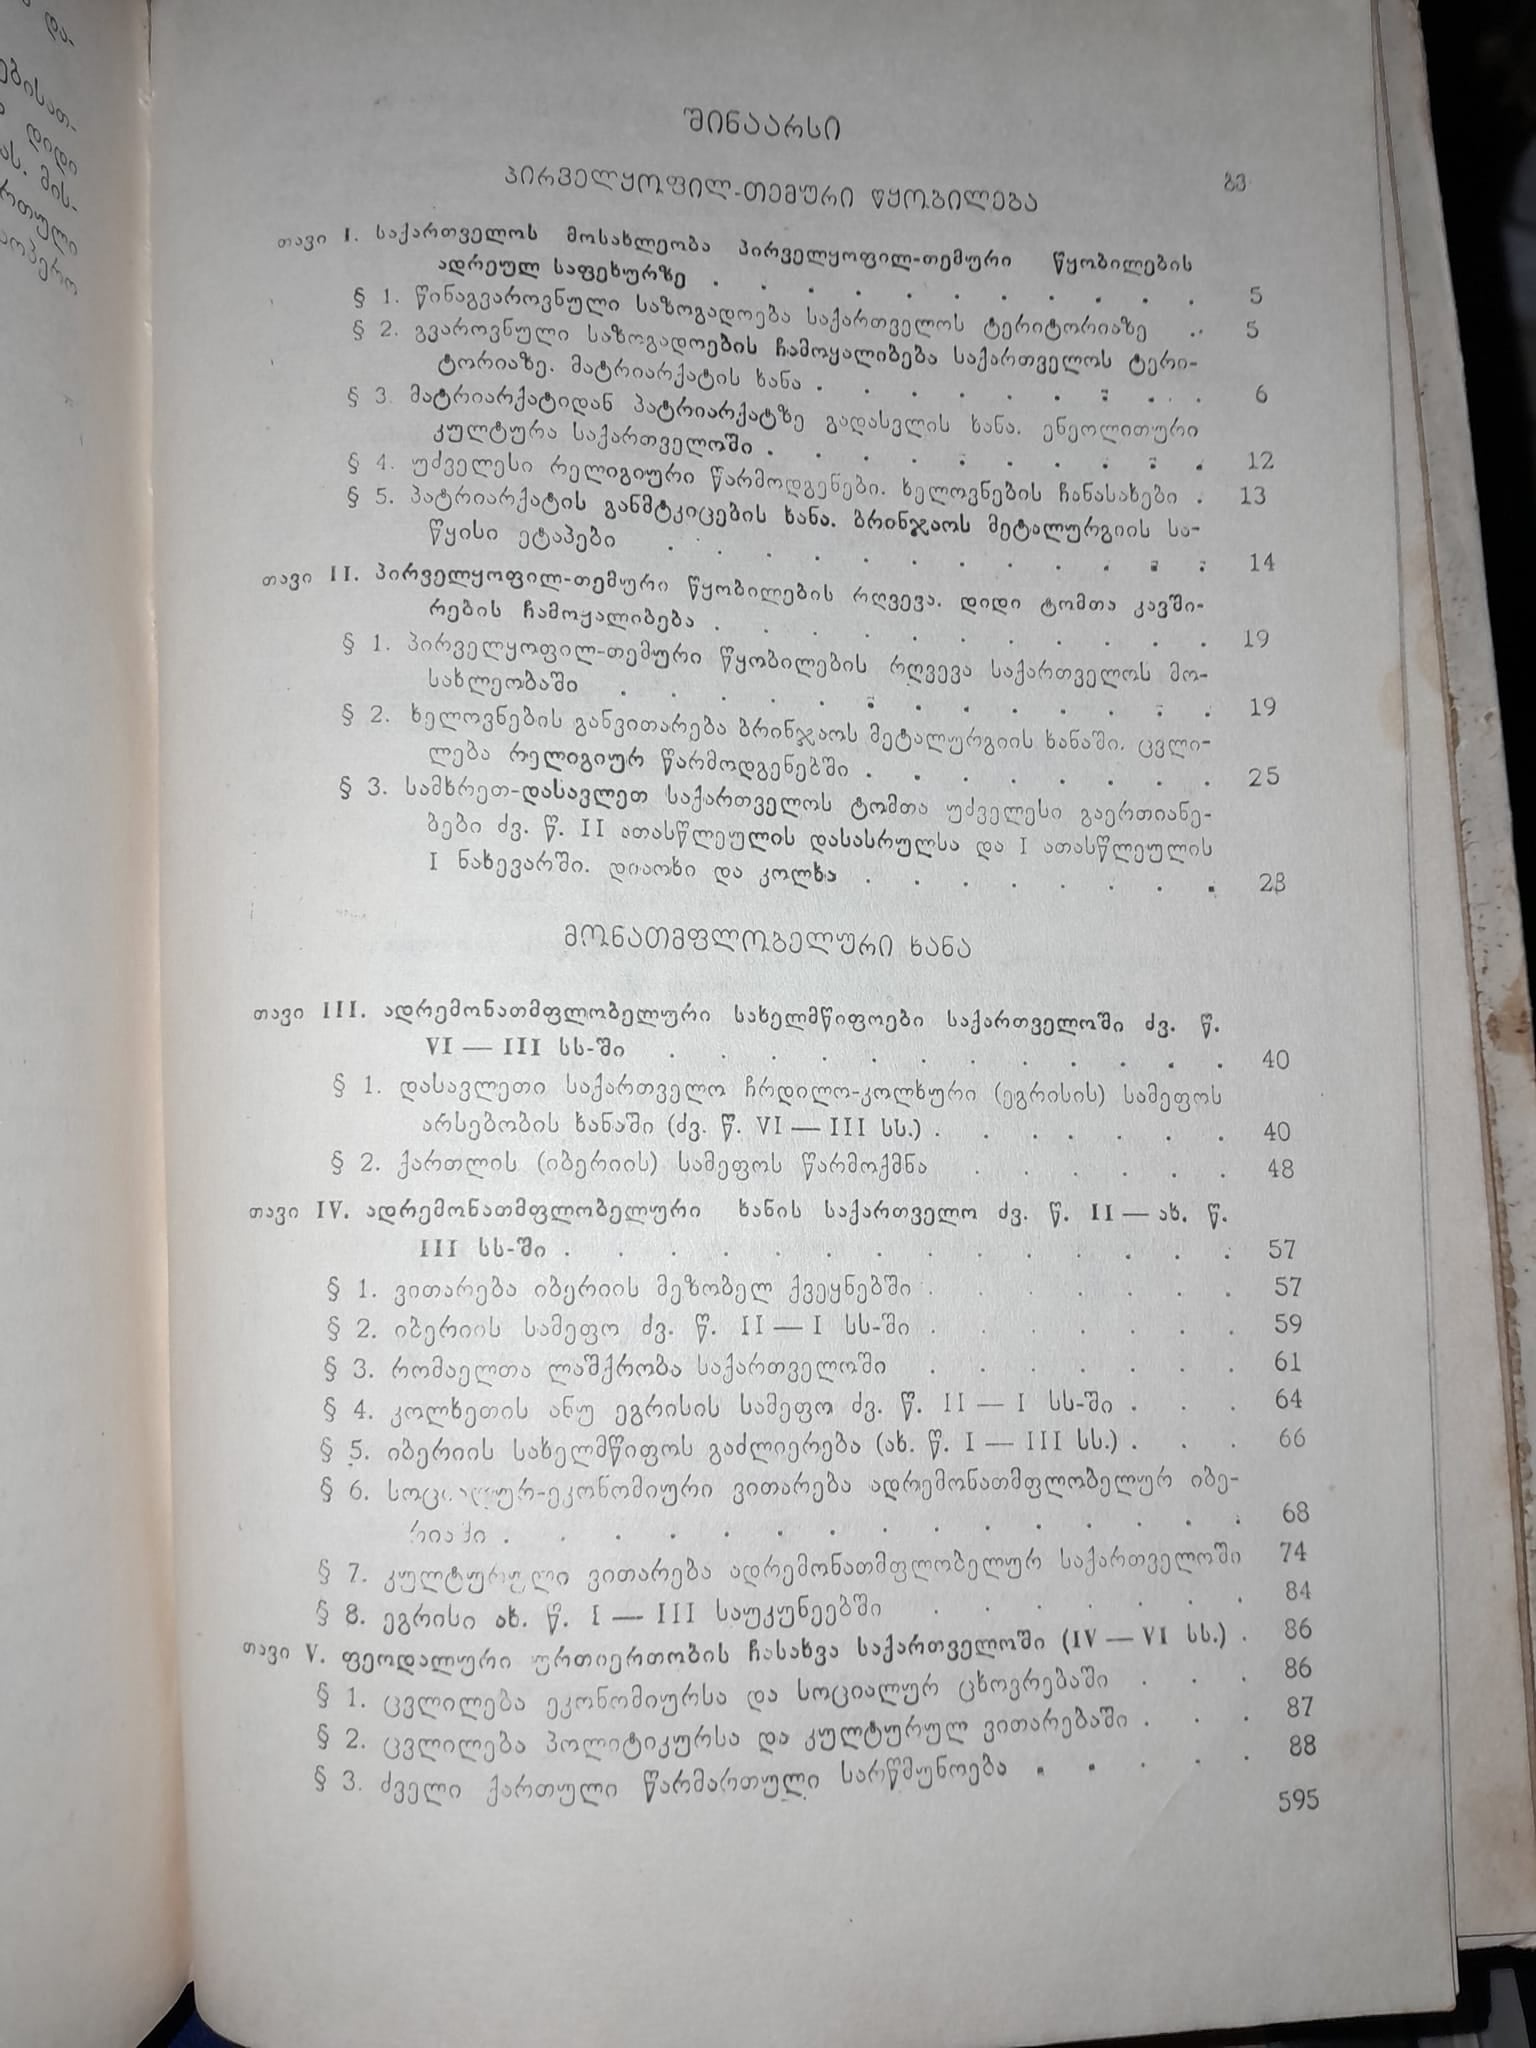 და-
ებისათ-
დიდი
ას. მის-
რთული
შინაარსი
პირველყოფილ-თემური წყობილება გვ.
თავი I. საქართველოს მოსახლეობა პირველყოფილ-თემური წყობილების
ადრეულ საფეხურზე . . . . . . . . . . . 5
§ 1. წინაგვაროვნული საზოგადოება საქართველოს ტერიტორიაზე . . 5
§ 2. გვაროვნული საზოგადოების ჩამოყალიბება საქართველოს ტერი-
ტორიაზე. მატრიარქატის ხანა . . . . . . . . . 6
§ 3. მატრიარქატიდან პატრიარქატზე გადასვლის ხანა. ენეოლითური
კულტურა საქართველოში . . . . . . . . . . 12
§ 4. უძველესი რელიგიური წარმოდგენები. ხელოვნების ჩანასახები . 13
§ 5. პატრიარქატის განმტკიცების ხანა. ბრინჯაოს მეტალურგიის სა-
წყისი ეტაპები . . . . . . . . . . . . 14
თავი II. პირველყოფილ-თემური წყობილების რღვევა. დიდი ტომთა კავში-
რების ჩამოყალიბება . . . . . . . . . . . 19
§ 1. პირველყოფილ-თემური წყობილების რღვევა საქართველოს მო-
სახლეობაში . . . . . . . . . . . . . 19
§ 2. ხელოვნების განვითარება ბრინჯაოს მეტალურგიის ხანაში. ცვლი-
ლება რელიგიურ წარმოდგენებში . . . . . . . . 25
§ 3. სამხრეთ-დასავლეთ საქართველოს ტომთა უძველესი გაერთიანე-
ბები ძვ. წ. II ათასწლეულის დასასრულსა და I ათასწლეულის
I ნახევარში. დიაოხი და კოლხა . . . . . . . . 28
მონათმფლობელური ხანა
თავი III. ადრემონათმფლობელური სახელმწიფოები საქართველოში ძვ. წ.
VI — III სს-ში . . . . . . . . . . . . 40
§ 1. დასავლეთი საქართველო ჩრდილო-კოლხური (ეგრისის) სამეფოს
არსებობის ხანაში (ძვ. წ. VI — III სს.) . . . . . . . 40
§ 2. ქართლის (იბერიის) სამეფოს წარმოქმნა . . . . . . 48
თავი IV. ადრემონათმფლობელური ხანის საქართველო ძვ. წ. II — ახ. წ.
III სს-ში . . . . . . . . . . . . . . 57
§ 1. ვითარება იბერიის მეზობელ ქვეყნებში . . . . . . . 57
§ 2. იბერიის სამეფო ძვ. წ. II — I სს-ში . . . . . . . 59
§ 3. რომაელთა ლაშქრობა საქართველოში . . . . . . . 61
§ 4. კოლხეთის ანუ ეგრისის სამეფო ძვ. წ. II — I სს-ში . . . 64
§ 5. იბერიის სახელმწიფოს გაძლიერება (ახ. წ. I — III სს.) . . . 66
§ 6. სოციალურ-ეკონომიური ვითარება ადრემონათმფლობელურ იბე-
რიაში . . . . . . . . . . . . . . . 68
§ 7. კულტურული ვითარება ადრემონათმფლობელურ საქართველოში 74
§ 8. ეგრისი ახ. წ. I — III საუკუნეებში . . . . . . . 84
თავი V. ფეოდალური ურთიერთობის ჩასახვა საქართველოში (IV — VI სს.) . 86
§ 1. ცვლილება ეკონომიურსა და სოციალურ ცხოვრებაში . . . 86
§ 2. ცვლილება პოლიტიკურსა და კულტურულ ვითარებაში . . . 87
§ 3. ძველი ქართული წარმართული სარწმუნოება . . . . . 88
595